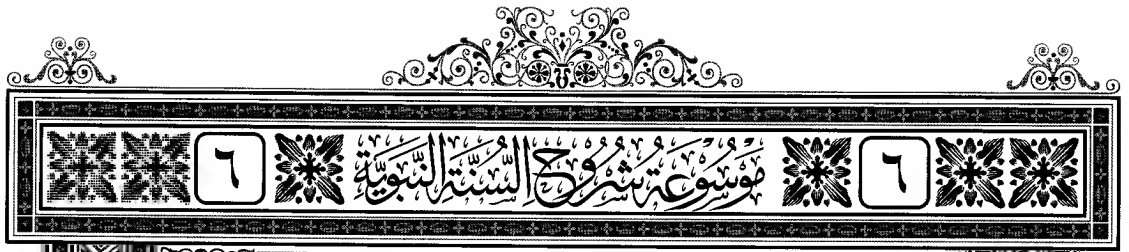 ٦ مَوْسُوعَة شُرُوح السُّنَّة النَّبَوِيَّة ٦